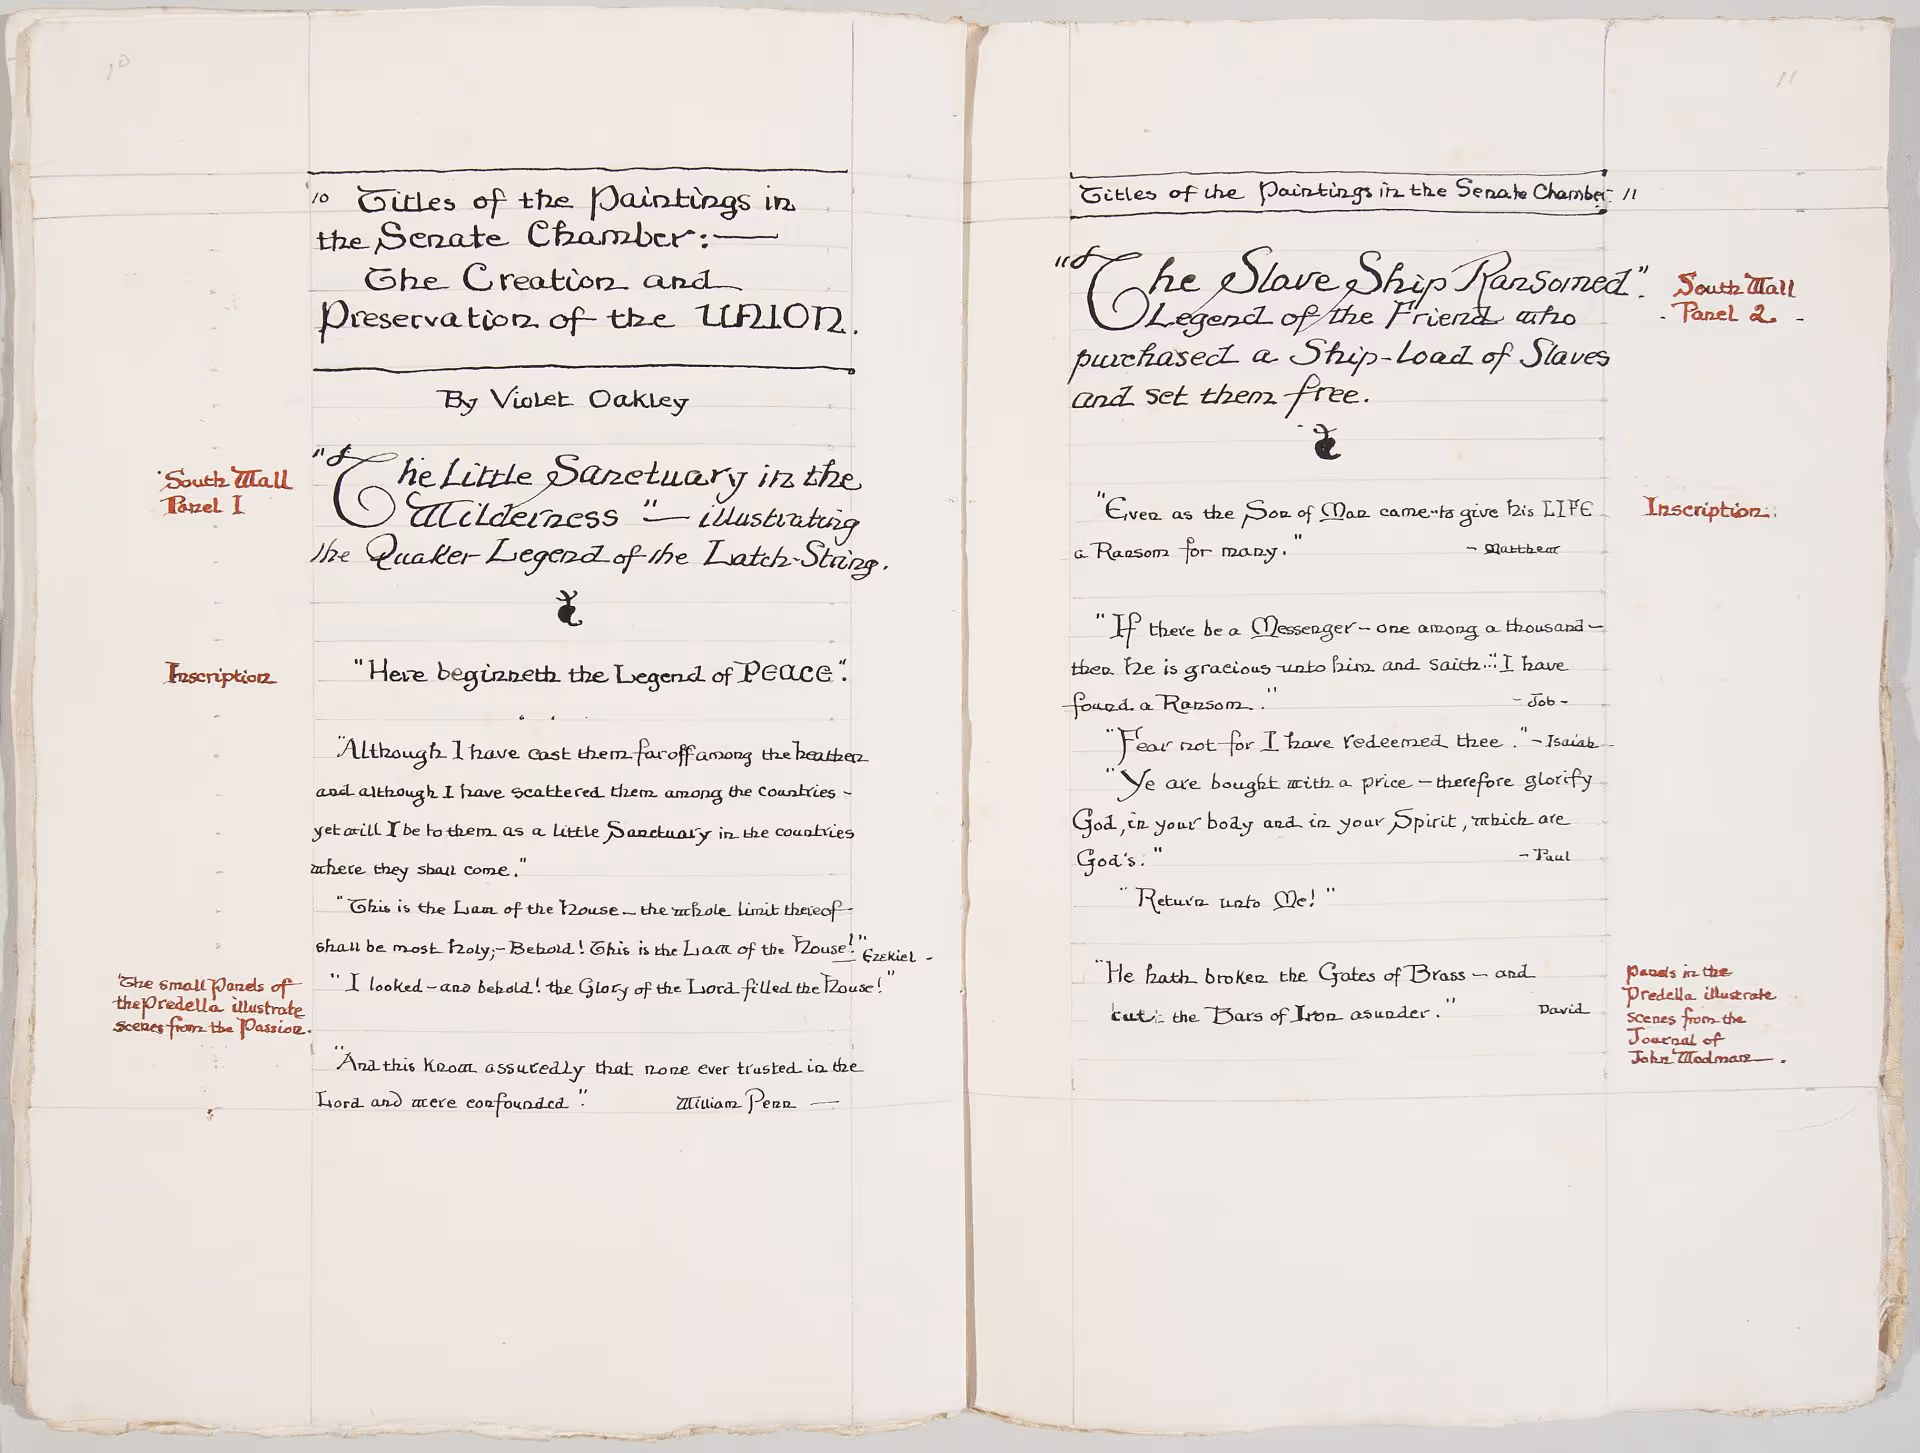 10
10 Titles of the Paintings in
the Senate Chamber:—
The Creation and
Preservation of the UNION.
By Violet Oakley
South Wall
Panel I
"The Little Sanctuary in the
Wilderness" — illustrating
the Quaker Legend of the Latch-String.
Inscription
"Here beginneth the Legend of PEACE".
"Although I have cast them far off among the heathen
and although I have scattered them among the countries –
yet will I be to them as a little Sanctuary in the countries
where they shall come."
"This is the Law of the House – the whole limit thereof
shall be most holy;– Behold! This is the Law of the House!" Ezekiel –
"I looked – and behold! the Glory of the Lord filled the House!"
The small Panels of
the Predella illustrate
scenes from the Passion.
"And this know assuredly that none ever trusted in the
Lord and were confounded." William Penn —
11
Titles of the Paintings in the Senate Chamber. 11
"The Slave Ship Ransomed".
Legend of the Friend who
purchased a Ship-load of Slaves
and set them free.
South Wall
Panel 2
"Even as the Son of Man came–to give his LIFE
a Ransom for many." – Matthew
Inscription.
"If there be a Messenger – one among a thousand –
then he is gracious unto him and saith:"I have
found a Ransom." – Job –
"Fear not for I have redeemed thee." – Isaiah –
"Ye are bought with a price – therefore glorify
God, in your body and in your Spirit, which are
God's." – Paul
"Return unto Me!"
"He hath broken the Gates of Brass – and
cut the Bars of Iron asunder." David
Panels in the
Predella illustrate
scenes from the
Journal of
John Woolman.